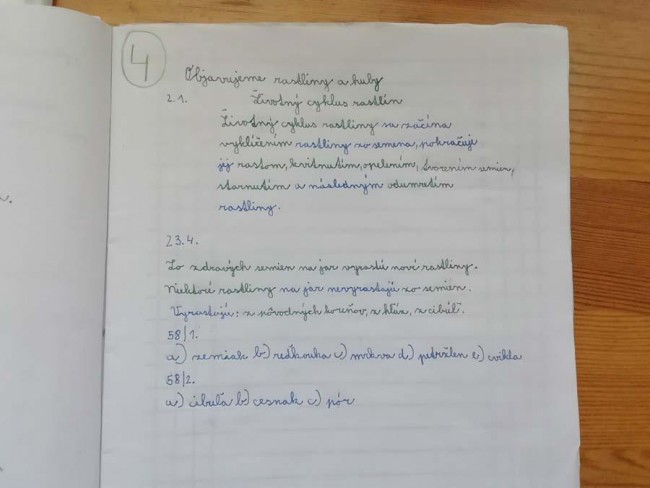 4
Objavujeme rastliny a huby
2.1. Životný cyklus rastlín
Životný cyklus rastliny sa začína
vyklíčením rastliny zo semena, pokračuje
jej rastom, kvitnutím, opelením, tvorením semien,
starnutím a následným odumretím
rastliny.
23.4.
Zo zdravých semien na jar vyrastú nové rastliny.
Niektoré rastliny na jar nevyrastajú zo semien.
Vyrastajú: z pôvodných koreňov, z hľúz, z cibúľ.
58/1.
a) zemiak b) reďkovka c) mrkva d) petržlen e) cvikla
58/2.
a) cibuľa b) cesnak c) pór